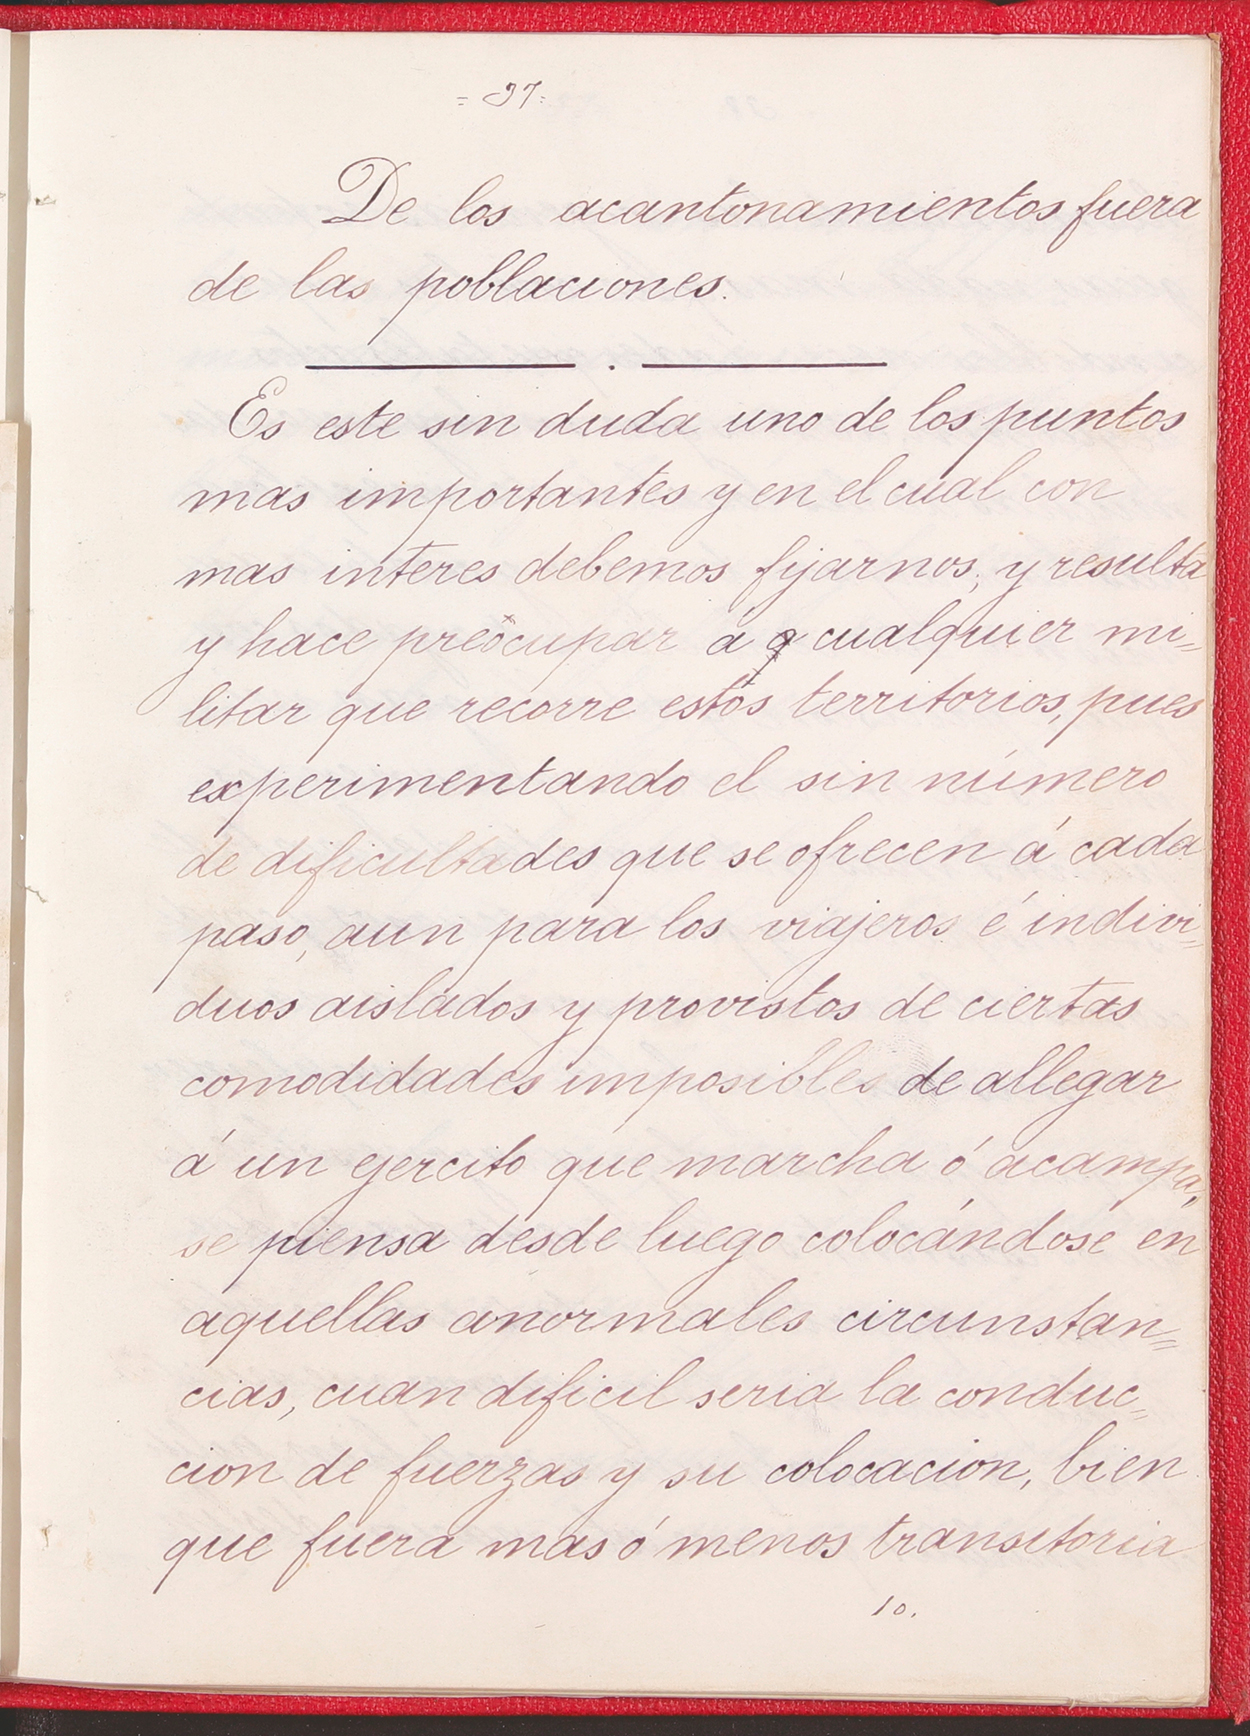 = 37 =
De los acantonamientos fuera
de las poblaciones.
Es este sin duda uno de los puntos
mas importantes y en el cual con
mas interes debemos fijarnos, y resulta
y hace preocupar á cualquier mi=
litar que recorre estos territorios, pues
experimentando el sin número
de dificultades que se ofrecen á cada
paso, aun para los viajeros é indivi=
duos aislados y provistos de ciertas
comodidades imposibles de allegar
á un ejercito que marcha ó acampa,
se piensa desde luego colocándose en
aquellas anormales circunstan=
cias, cuan dificil seria la conduc=
cion de fuerzas y su colocacion, bien
que fuera mas ó menos transitoria
10.